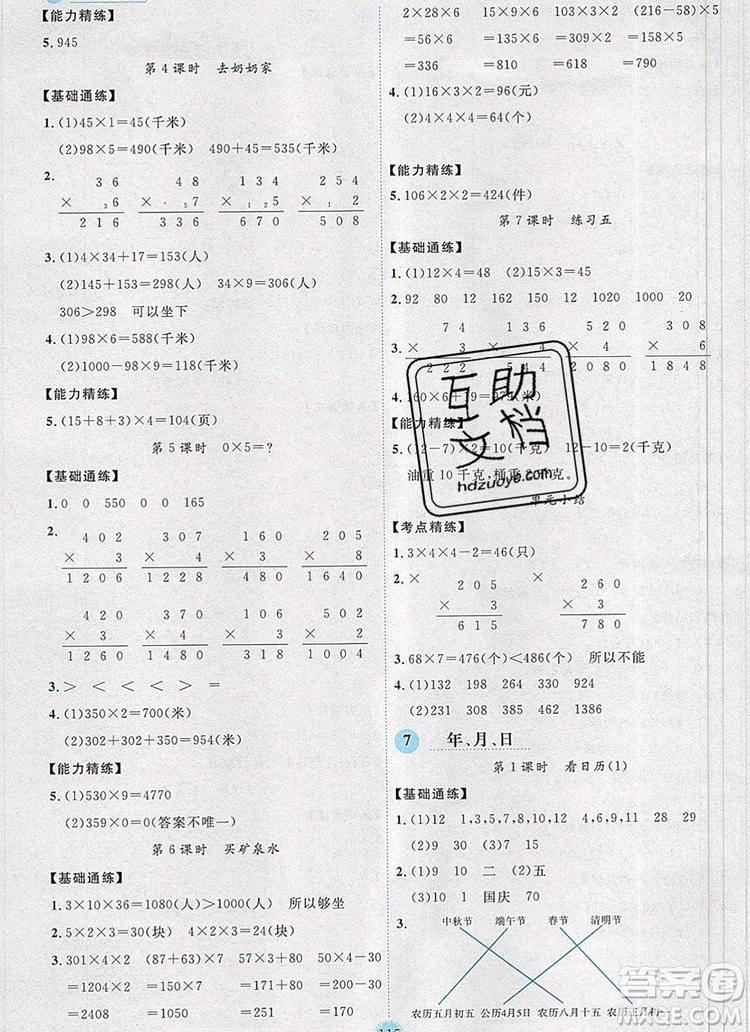 【能力精练】
5. 945
第4课时 去奶奶家
【基础通练】
1. (1)45×1=45(千米)
(2)98×5=490(千米) 490+45=535(千米)
2.
3 6 4 8 1 3 4 2 5 4
× 6 × 5 × 5 × 2
2 1 6 2 4 0 6 7 0 5 0 8
3. (1)4×34+17=153(人)
(2)145+153=298(人) 34×9=306(人)
306>298 可以坐下
4. (1)98×6=588(千米)
(2)1000-98×9=118(千米)
【能力精练】
5. (15+8+3)×4=104(页)
第5课时 0×5=?
【基础通练】
1. 0 0 550 0 0 165
2.
4 0 2 3 7 0 1 6 0 2 0 5
× 3 × 3 × 3 × 8
1 2 0 6 1 1 1 0 4 8 0 1 6 4 0
4 2 0 3 7 0 1 0 6 5 0 2
× 3 × 4 × 3 × 4
1 2 6 0 1 4 8 0 3 1 8 2 0 0 8
3. > < < < < =
4. (1)350×2=700(米)
(2)302+302+350=954(米)
【能力精练】
5. (1)530×9=4770
(2)359×0(答案不唯一)
第6课时 买矿泉水
【基础通练】
1. 3×10×36=1080(人)>1000(人) 所以够坐
2. 5×2×3=30(块) 4×2×3=24(块)
3. 301×4×2 (87+63)×7 57×3×5 50×4-30
=1204×2 =150×7 =171×5 =200-30
=2408 =1050 =855 =170
2×28×6 15×4×5 103×3×2 (216-58)×5
=56×6 =60×5 =309×2 =158×5
=336 =300 =618 =790
4. (1)16×3×2=96(元)
(2)4×4×4=64(个)
【能力精练】
5. 106×2×2=424(件)
第7课时 练习五
【基础通练】
1. (1)12×4=48 (2)15×3=45
2. 92 80 12 162 150 130 1000 20
3.
互助文档
hdzuoye.com
【能力精练】
5. (12-7)×2=10(千克) 12-10=2(千克)
油重10千克,桶重2千克。
单元小结
【考点精练】
1. 3×4×4-2=46(只)
2. × 2 0 5 × 2 6 0
× 3 × 3
6 1 5 7 8 0
3. 68×7=476(个)<486(个) 所以不能
4. (1)132 198 264 330 924
(2)231 308 385 462 1386
7 年、月、日
第1课时 看日历(1)
【基础通练】
1. (1)12 1,3,5,7,8,10,12 4,6,9,11 28 29
(2)30 (3)7 15
2. (1)9 10 二 (2)五
(3)10 1 国庆 70
3.
中秋节 端午节 春节 清明节
农历五月初五 公历4月5日 农历八月十五 农历正月初一
115
答案圈